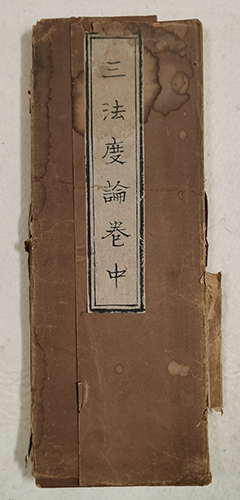 三法度論卷中